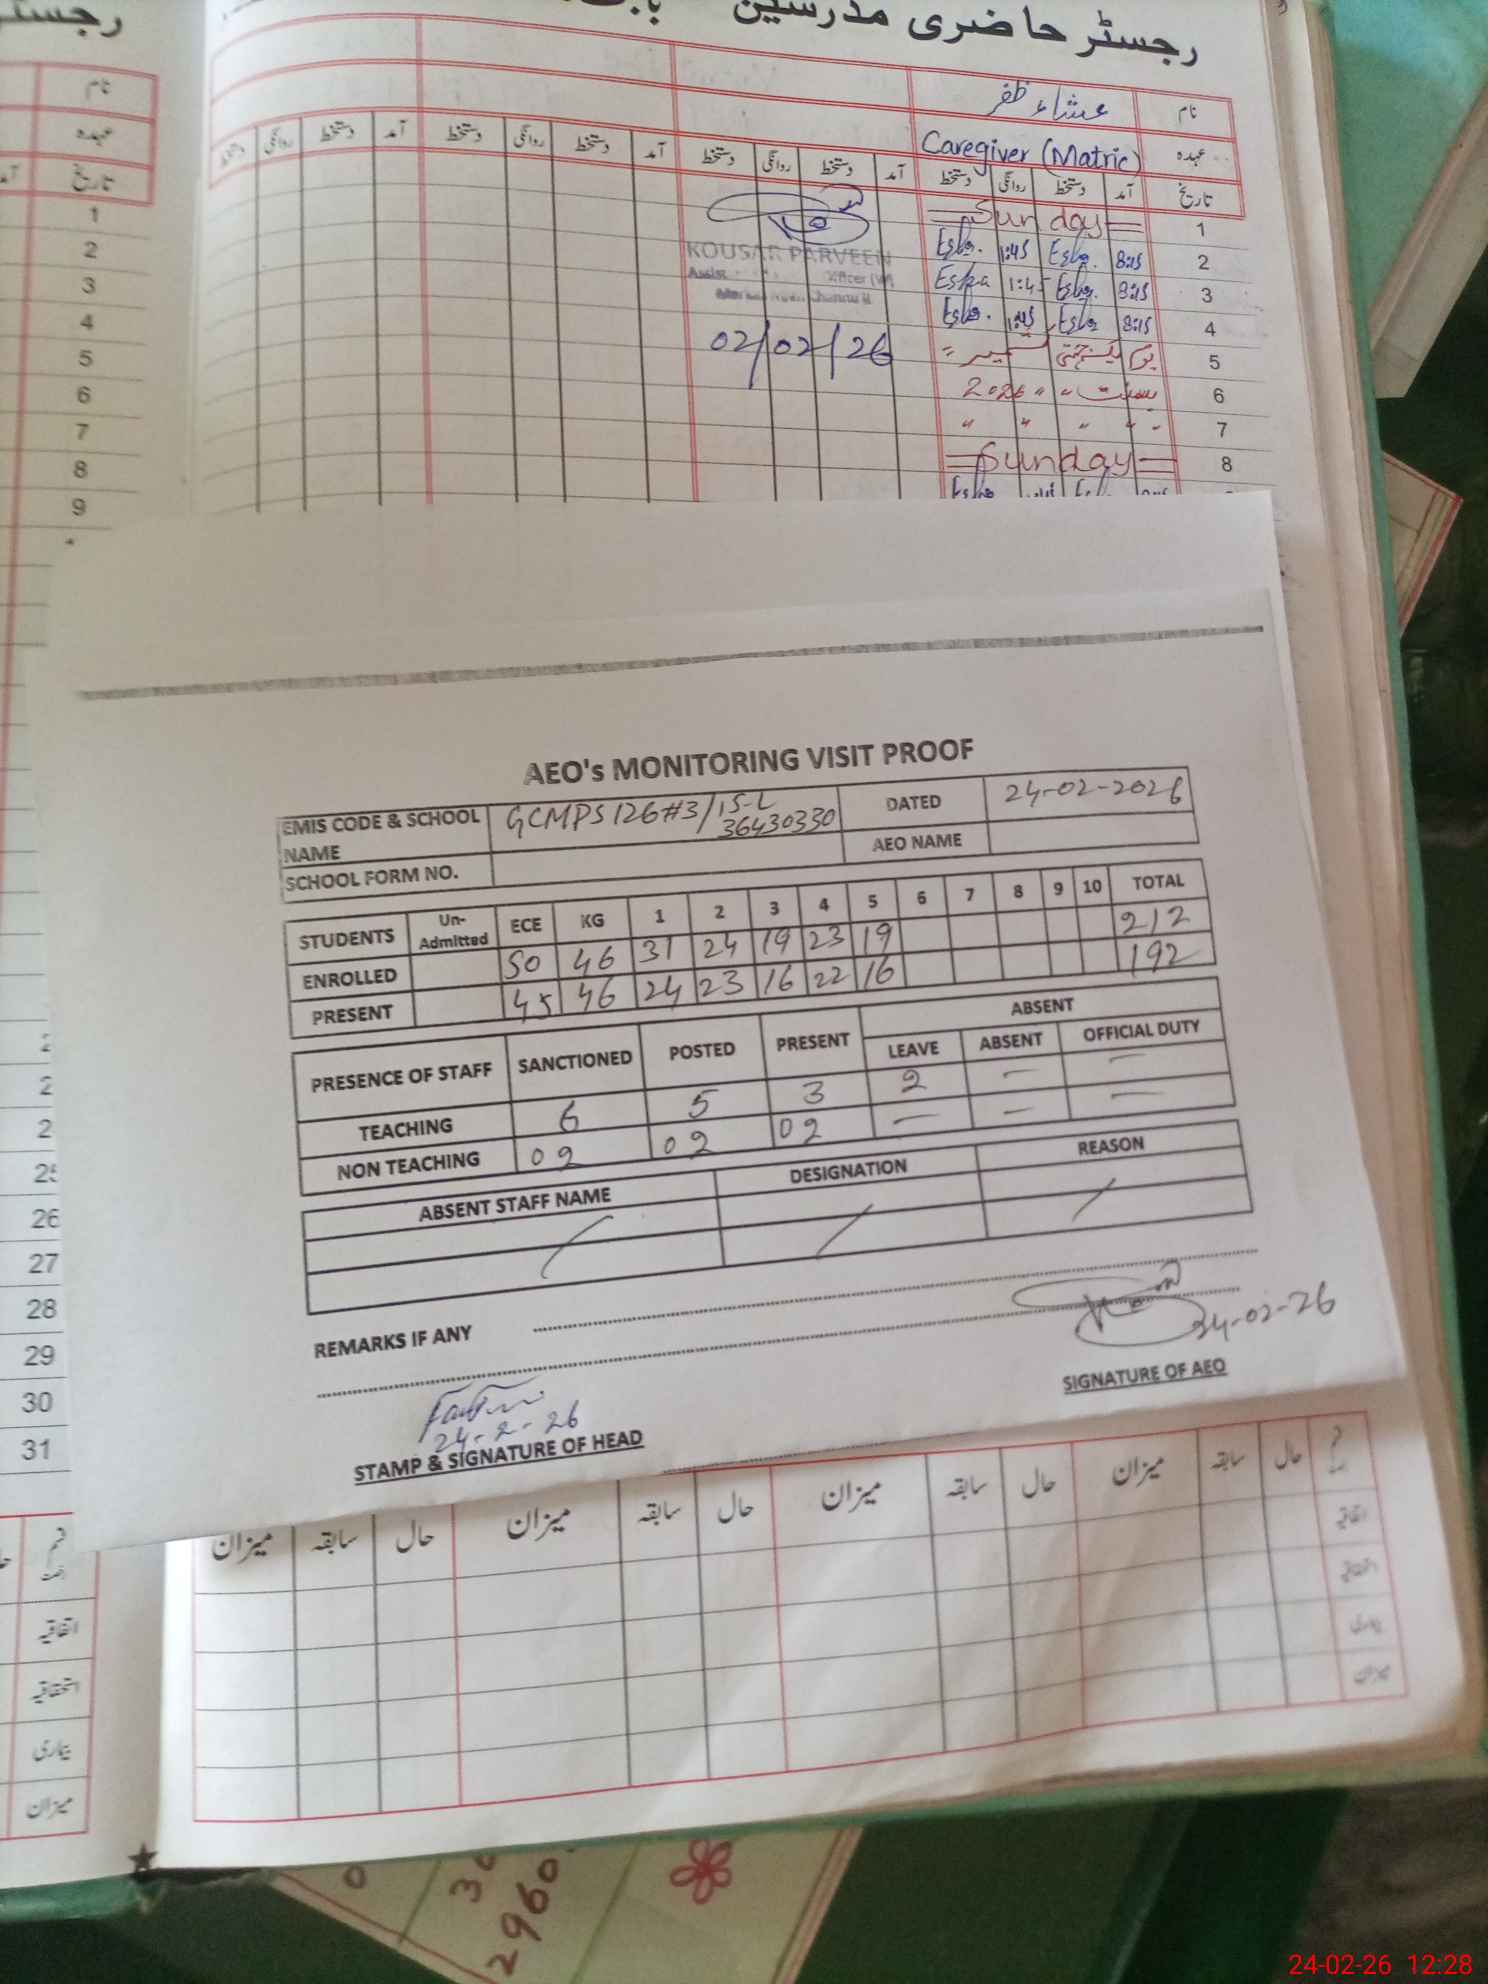 رجسٹر حاضری مدرسین
نام عشاء ظفر
عہدہ Caregiver (Matric)
تاریخ آمد دستخط روانگی دستخط آمد دستخط روانگی دستخط آمد دستخط روانگی دستخط آمد دستخط روانگی دستخط
1 = Sunday =
2 8:15 Esha. 1:45 Esha.
3 8:15 Esha. 1:45 Esha
4 8:15 Esha 1:45 Esha.
5 یوم یکجہتی کشمیر
6 بسنت 2026
7 " " " "
8 = Sunday =
KOUSAR PARVEEN
Officer (W)
02/02/26
نام
عہدہ
تاریخ
1
2
3
4
5
6
7
8
9
AEO's MONITORING VISIT PROOF
EMIS CODE & SCHOOL NAME GCMPS 126#3/15-L 36430330 DATED 24-02-2026
SCHOOL FORM NO. AEO NAME
STUDENTS Un-Admitted ECE KG 1 2 3 4 5 6 7 8 9 10 TOTAL
ENROLLED 50 46 31 24 19 23 19 212
PRESENT 45 46 24 23 16 22 16 192
PRESENCE OF STAFF SANCTIONED POSTED PRESENT ABSENT
LEAVE ABSENT OFFICIAL DUTY
TEACHING 6 5 3 2 — —
NON TEACHING 02 02 02 — — —
ABSENT STAFF NAME DESIGNATION REASON
REMARKS IF ANY
24-02-26
SIGNATURE OF AEO
24-2-26
STAMP & SIGNATURE OF HEAD
25
26
27
28
29
30
31
حال سابقہ میزان حال سابقہ میزان حال سابقہ میزان
اتفاقیہ
استحقاقیہ
بیماری
میزان
اتفاقیہ
استحقاقیہ
بیماری
میزان
2960
24-02-26 12:28